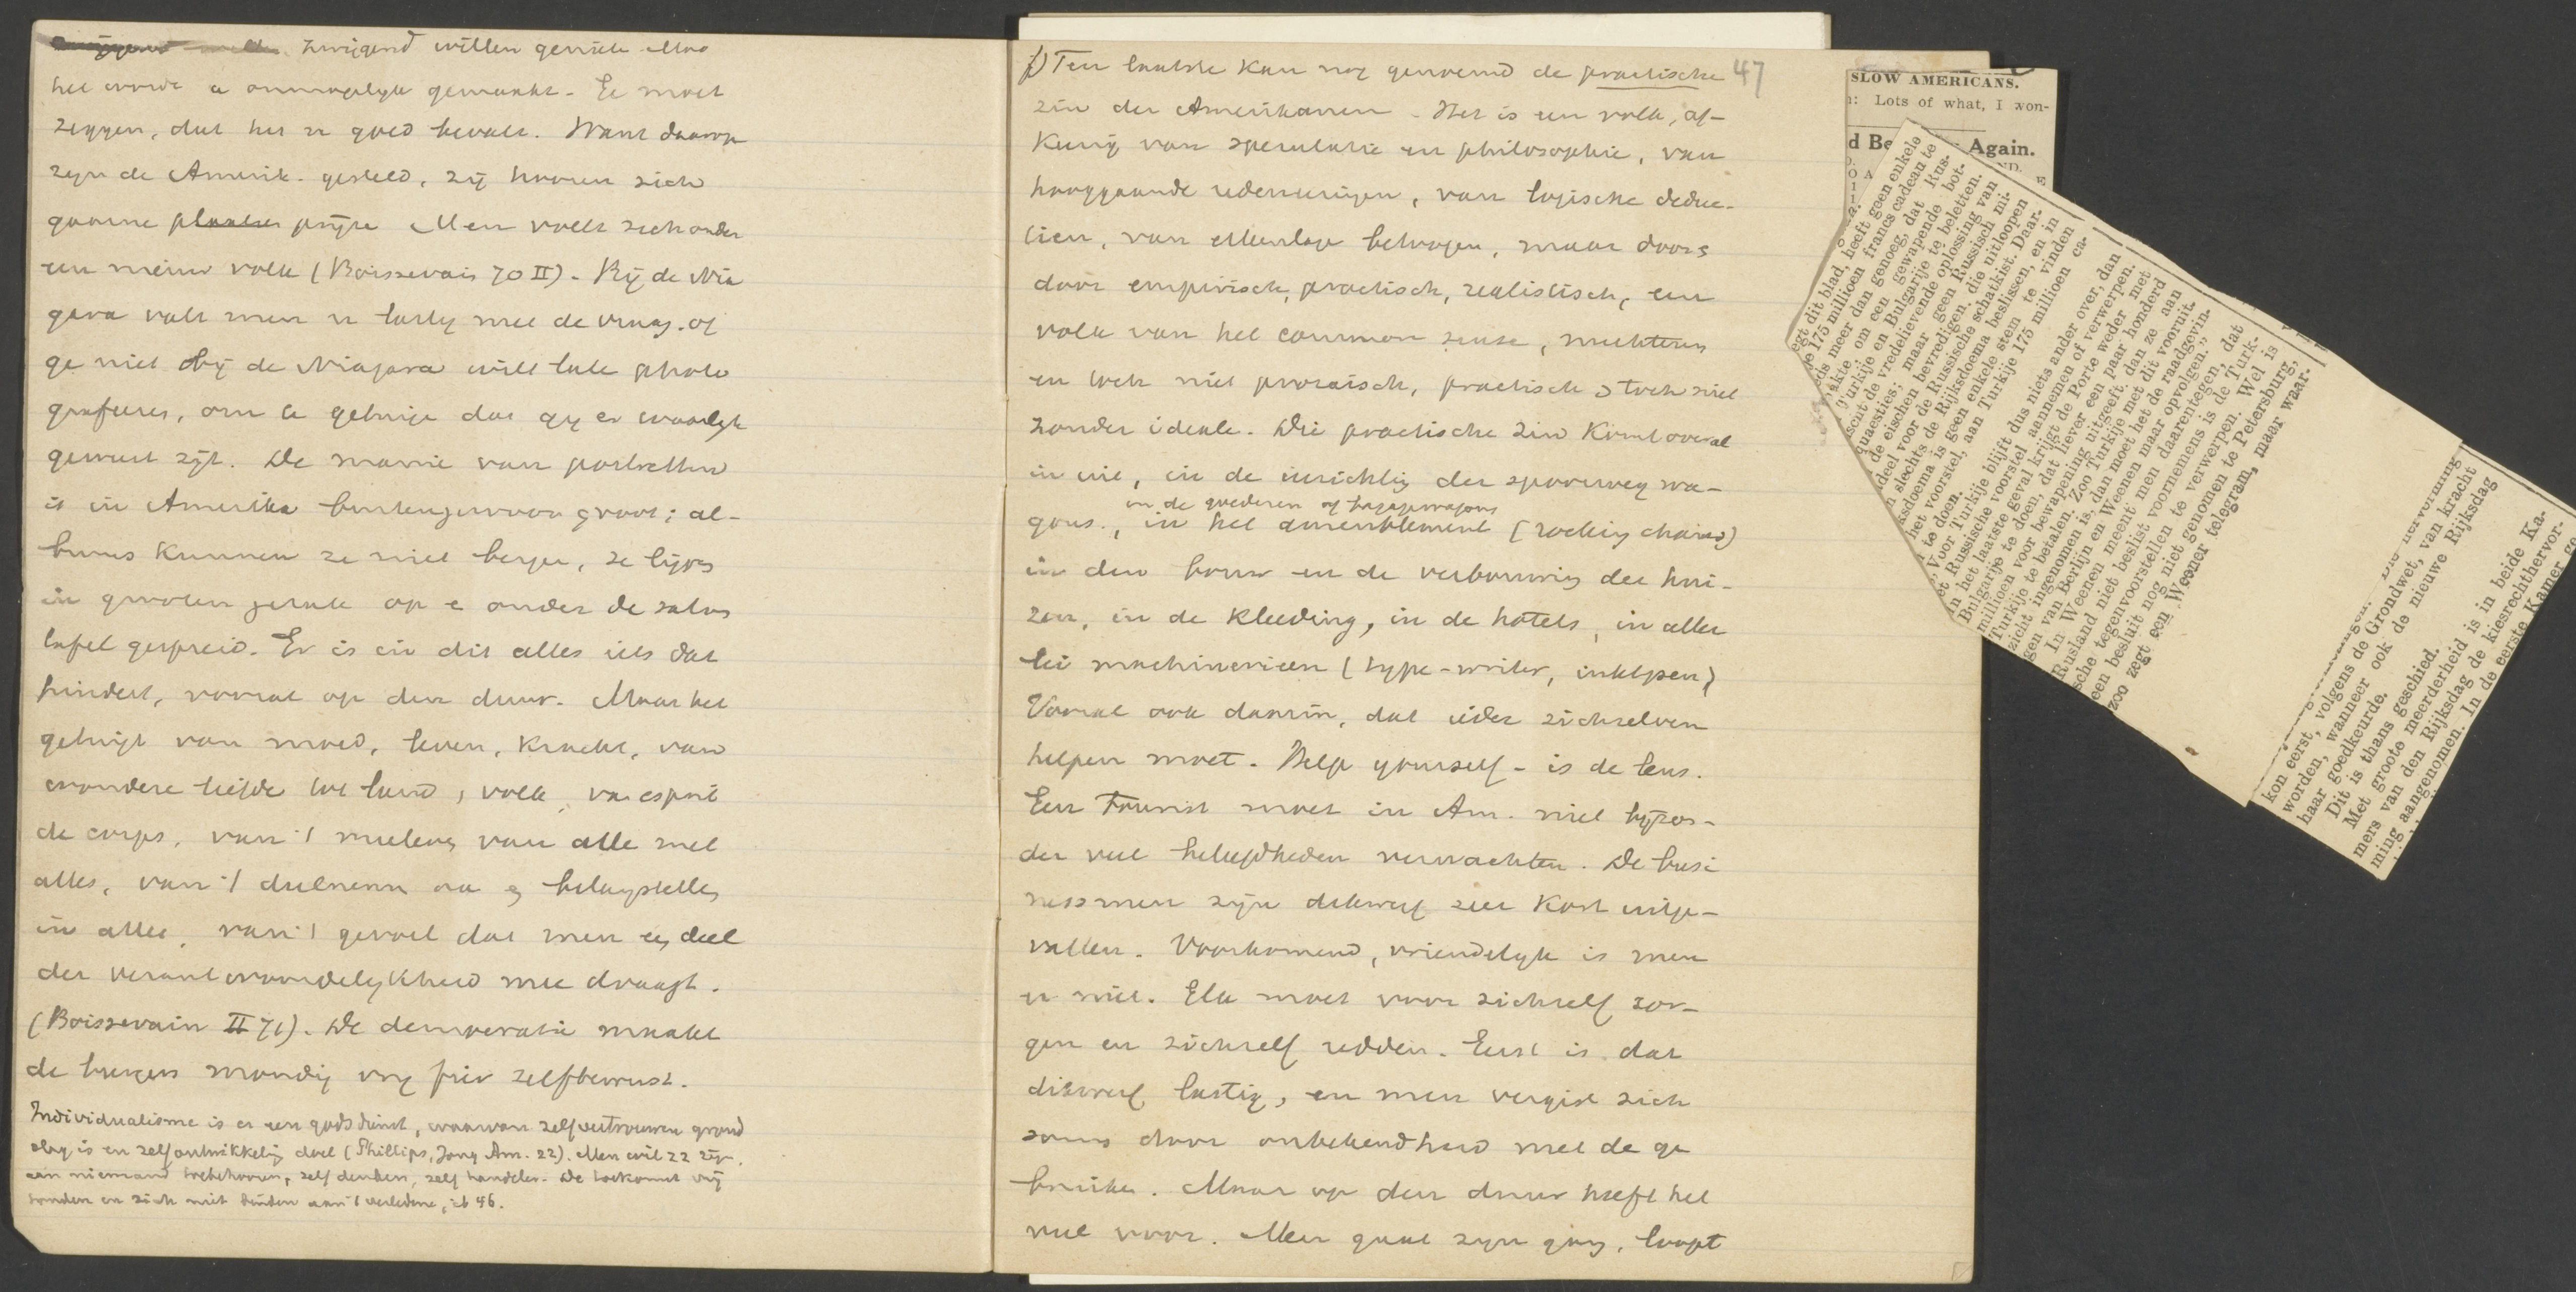 zwijgend willen genieten. Maar
het wordt u onmogelijk gemaakt. Ge moet
zeggen, dat het u goed bevalt. Want daarop
zijn de Amerik. gesteld, zij hooren zich
gaarne prijzen. Men voelt zich onder
een nieuw volk (Boissevain 70 II). Bij de Nia
gara valt men u lastig met de vraag, of
ge niet bij de Niagara wilt laten photo
grafeeren, om te getuigen dat gij er waarlijk
geweest zijt. De manie van portretten
is in Amerika buitengewoon groot; al-
bums kunnen ze niet bergen, ze liggen
in grooten getale op en onder de salon
tafel gespreid. Er is in dit alles iets dat
hindert, vooral op den duur. Maar het
getuigt van moed, leven, kracht, van
wondere liefde tot land, volk, van esprit
de corps, van 't meeleven van alle met
alles, van 't deelnemen aan en belangstellen
in alles, van 't gevoel dat men een deel
der verantwoordelijkheid mee draagt.
(Boissevain II 71). De democratie maakt
de burgers mondig vrij fier zelfbewust.
Individualisme is er een godsdienst, waarvan zelfvertrouwen grond
slag is en zelfontwikkeling doel (Phillips, Jong Am. 22). Men wil zz zijn,
aan niemand toebehooren, zelf denken, zelf handelen. De toekomst vrij
houden en zich niet binden aan 't verledene, ib 46.
f) Ten laatste kan nog genoemd de practische 47
zin der Amerikanen. Het is een volk, af-
keerig van speculatie en philosophie, van
hooggaande redeneeringen, van logische deduc-
tien, van ellenlange betoogen, maar door &
door empirisch, practisch, realistisch, een
volk van het common sense, nuchteren
en toch niet prozaisch, practisch & toch niet
zonder ideale. Die practische zin komt overal
in uit, in de inrichting der spoorweg wa-
in de goederen of bagagewagons
gons, in het ameublement (rocking chairs)
in den bouw en de verbouwing der hui-
zen, in de kleeding, in de hotels, in aller
lei machinerieen (type-writer, inktpen)
Vooral ook daarin, dat ieder zichzelven
helpen moet. Help yourself - is de leus.
Een Tourist moet in Am. niet bijzon-
der veel beleefdheden verwachten. De busi
nessmen zijn dikwerf zeer kort uitge-
vallen. Voorkomend, vriendelijk is men
er niet. Elk moet voor zichzelf zor-
gen en zichzelf redden. Eerst is dat
dikwerf lastig, en men vergist zich
soms door onbekendheid met de ge
bruiken. Maar op den duur heeft het
veel voor. Men gaat zijn gang, loopt
SLOW AMERICANS.
: Lots of what, I won-
d Be Again.
egt dit blad, heeft geen enkele
de 175 millioen francs cadeau te
eds meer dan genoeg, dat Rus-
akte om een gewapende bot-
Turkije en Bulgarije te beletten.
scut de vredelievende oplossing van
quaesties; maar geen Russisch mi-
de eischen bevredigen, die uitloopen
adeel voor de Russische schatkist. Daar-
n slechts de Rijksdoema beslissen, en in
ksdoema is geen enkele stem te vinden
het voorstel, aan Turkije 175 millioen ca-
u te doen.
Voor Turkije blijft dus niets ander over, dan
et Russische voorstel aannemen of verwerpen.
In het laatste geval krijgt de Porte weder met
Bulgarije te doen, dat liever een paar honderd
millioen voor bewapening uitgeeft, dan ze aan
Turkije te betalen. Zoo Turkije met dit vooruit-
zicht ingenomen is, dan moet het de raadgevin-
gen van Berlijn en Weenen maar opvolgen."
In Weenen meent men daarentegen, dat
Rusland niet beslist voornemens is de Turk-
sche tegenvoorstellen te verwerpen. Wel is
een besluit nog niet genomen te Petersburg,
zoo zegt een Weener telegram, maar waar-
kon eerst, volgens de Grondwet, van kracht
worden, wanneer ook de nieuwe Rijksdag
haar goedkeurde.
Dit is thans geschied.
Met groote meerderheid is in beide Ka-
mers van den Rijksdag de kiesrechthervor-
ming aangenomen. In de eerste Kamer ge